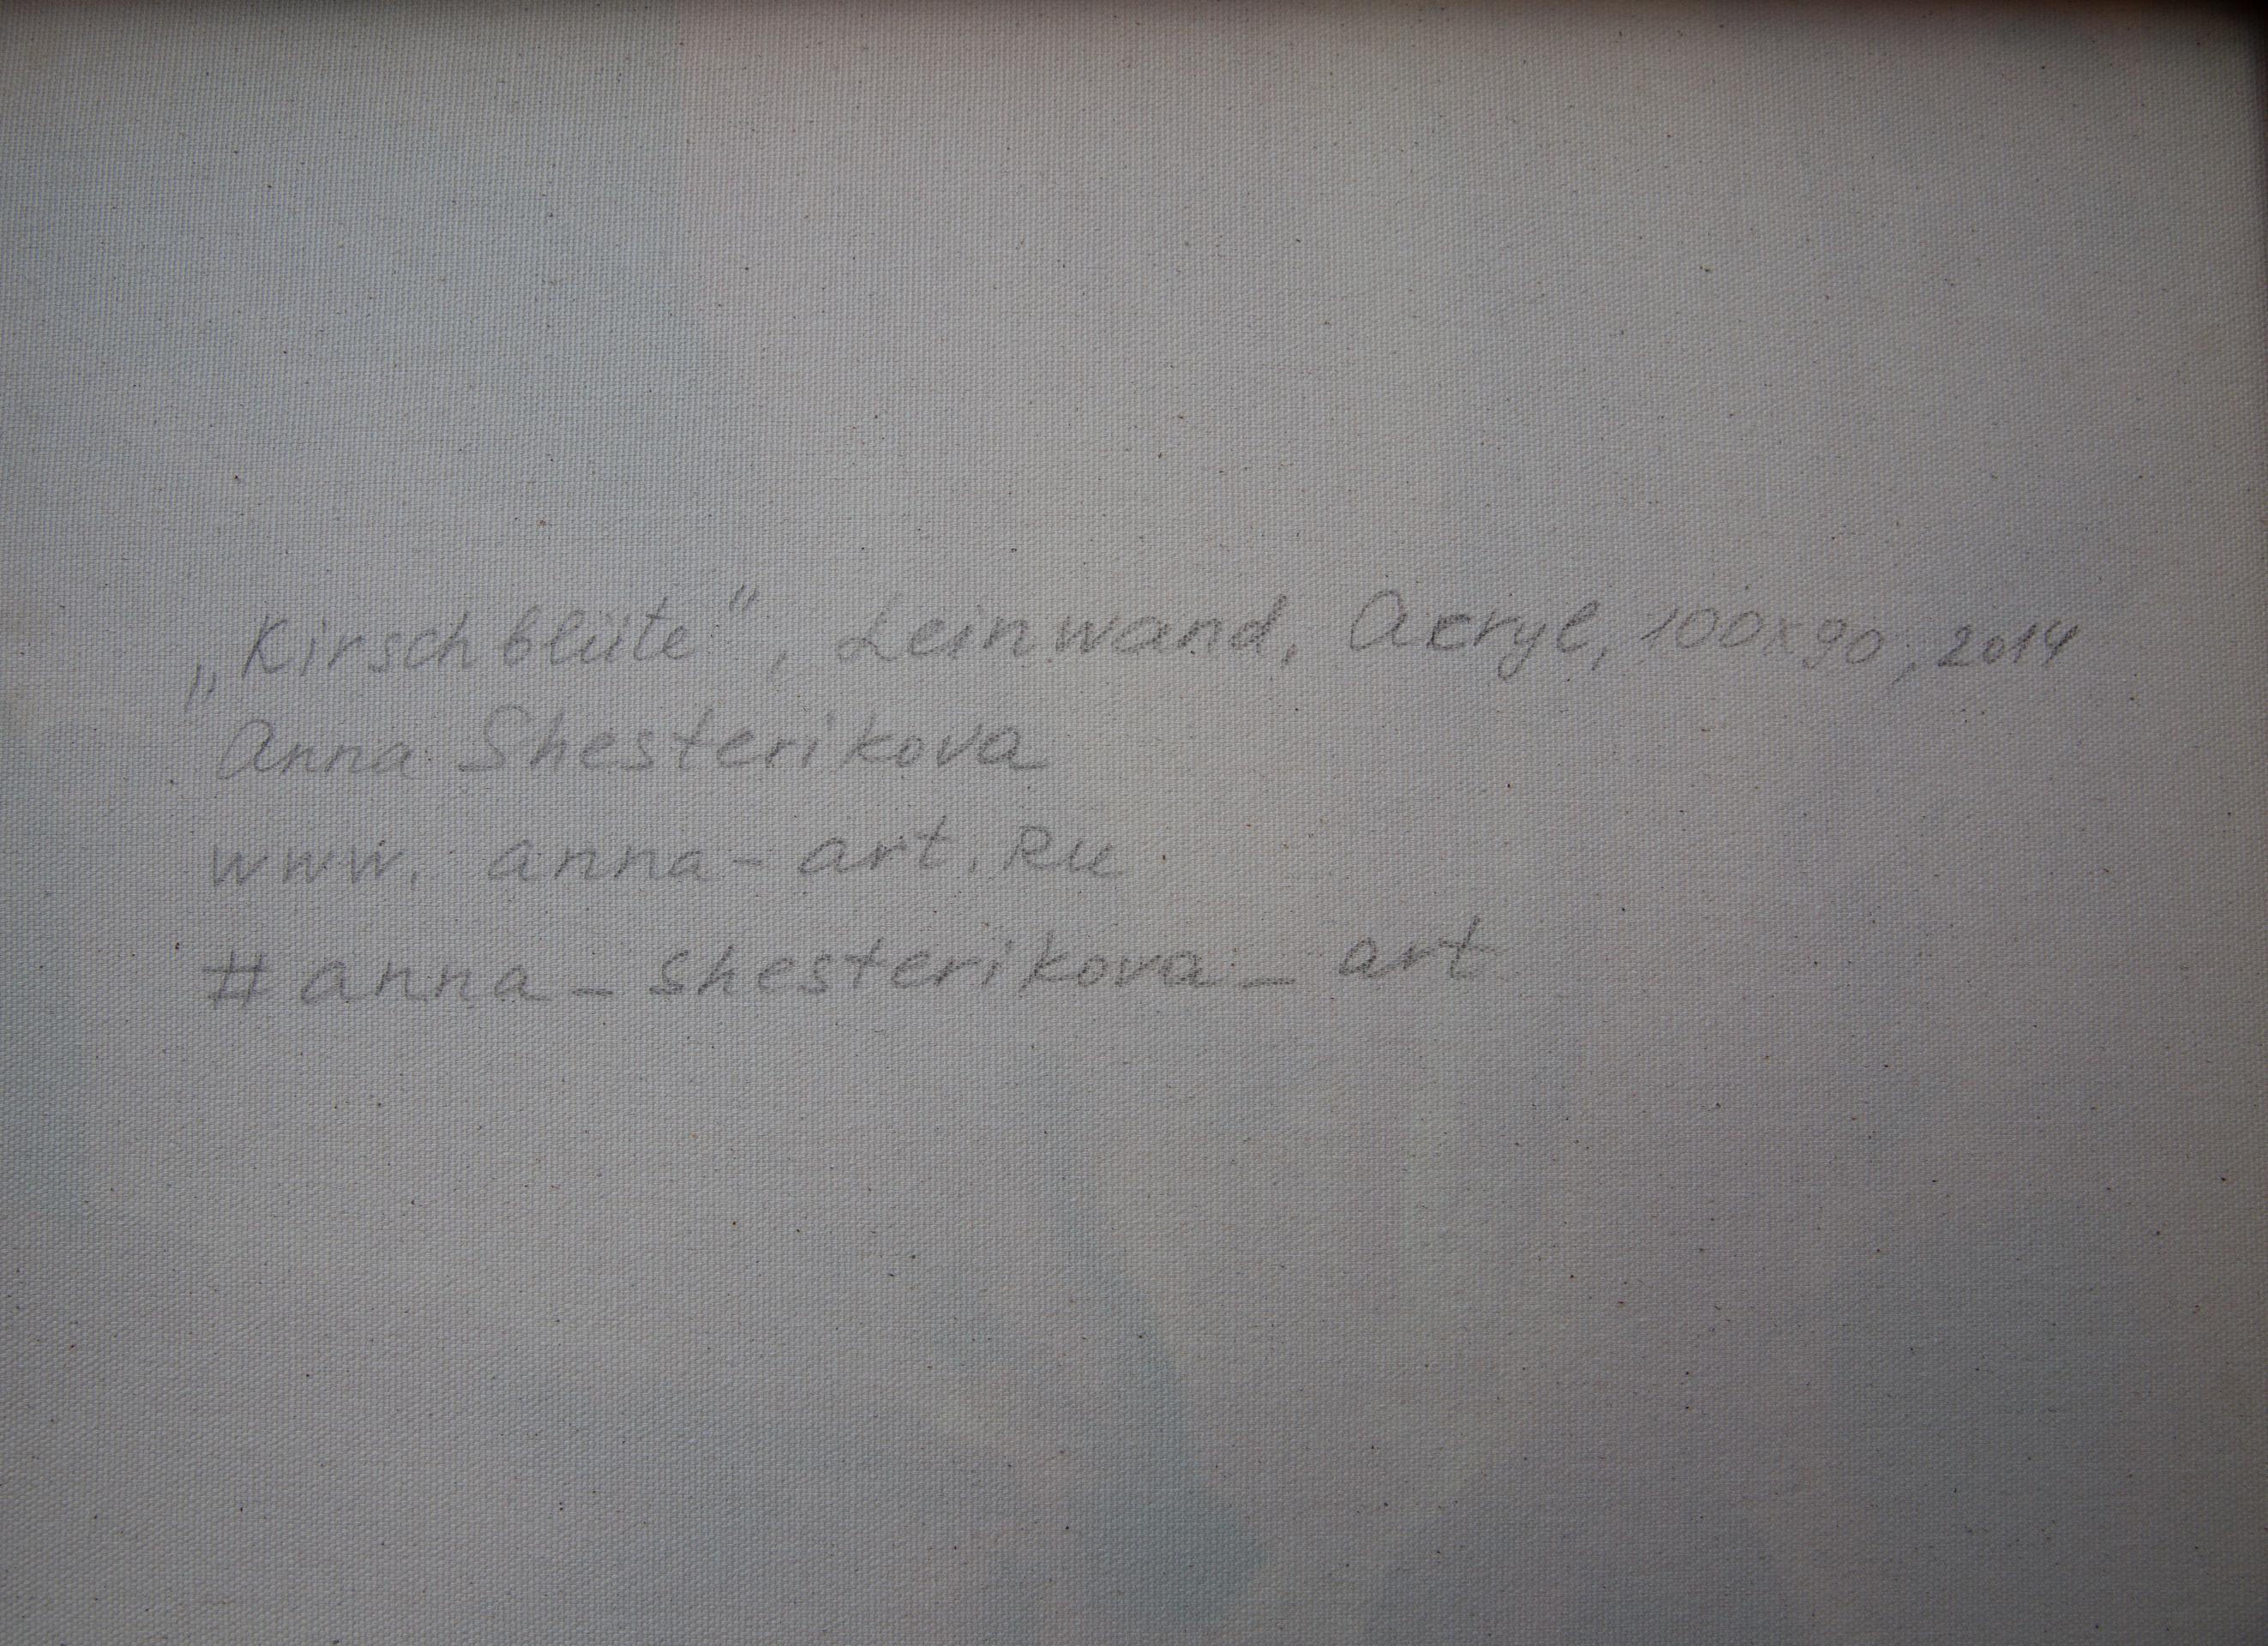 „Kirschblüte", Leinwand, Acryl, 100x90, 2014
Anna Shesterikova
www. anna-art.Ru
#anna_shesterikova_art